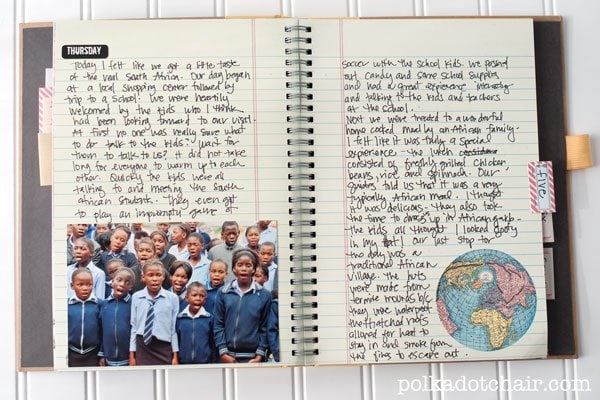 THURSDAY
Today I felt like we got a little taste
of the real South Africa. Our day began
at a local shopping center followed by
trip to a school. We were heartily
welcomed by the kids who I think
had been looking forward to our visit.
At first no one was really sure what
to do. talk to the kids? wait for
them to talk to us? It did not take
long for everyone to warm up to each
other. Quickly the kids were all
talking to and meeting the South
African students. They even got
to play an impromptu game of
soccer with the school kids. We passed
out candy and some school supplies
and had a great experience interacting
and talking to the kids and teachers
at the school.
Next we were treated to a wonderful
home cooked meal by an African family.
I felt like it was truly a special
experience. The lunch
consisted of freshly grilled chicken
beans, rice and spinach. Our
guides told us that it was a very
typically African meal. I thought
it was delicious. They also took
the time to dress up in African garb.
The kids all thought I looked goofy
in my hat! Our last stop for
the day was a
traditional African
village. The huts
were made from
termite mounds b/c
they were waterproof
the thatched roofs
allowed for heat to
stay in and smoke from
the fires to escape out.
five
polkadotchair.com